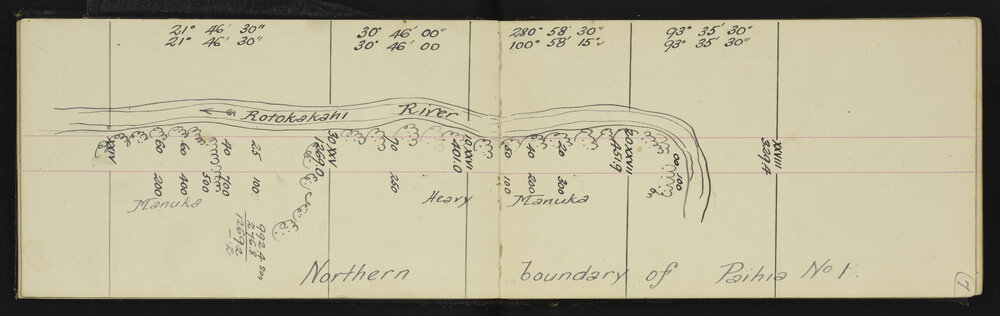 21° 46' 30"
21° 46' 30"
30° 46' 00"
30° 46' 00
280° 58' 30"
100° 58' 15"
93° 35' 30"
93° 35' 30"
Rotokakahi River
XXIV
60
200
60
400
500
40
700
25
100
30.XXV
1269.0
70
260
10.XXVI
401.0
50
100
40
200
20
300
20.XXVII
451.9
100
XXVIII
329.4
Manuka
Heavy Manuka
992.4
276.8
1269.2
Northern boundary of Paihia No 1.